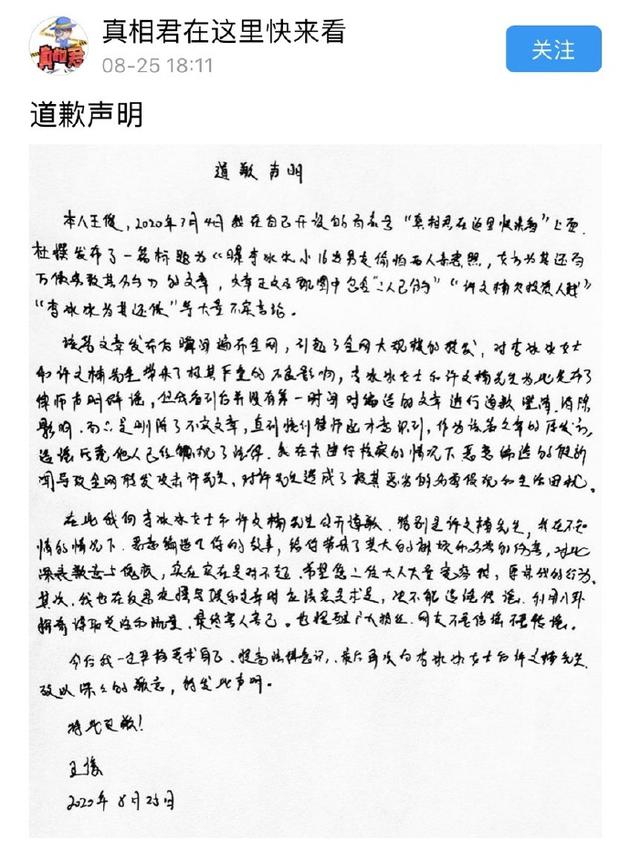 真相君在这里快来看
08-25 18:11
关注
真相君
道歉声明
道歉声明
本人王俊，2020年7月4日我在自己开设的百家号“真相君在这里快来看”上面
杜撰发布了一篇标题为《曝李冰冰小16岁男友偷拍两人亲密照，女方为其还
万债务数其》的文章，文章正文及配图中包含“二人已”“许文楠欠投资人钱”
“李冰冰为其还债”等大量不实言论。
该篇文章发布后瞬间遍布全网，引起了全网大规模的转发，对李冰冰女士
和许文楠先生带来了极其严重的不良影响，李冰冰女士和许文楠先生为此发布了
律师声明辟谣，但我看到后并没有第一时间对编造的文章进行道歉澄清、消除
影响，而只是删除了不实文章，直到我才意识到，作为该篇文章的原发方，
造谣他人已经触犯了法律。我在未进行核实的情况下恶意编造的假新
闻导致全网转发攻击许先生，对许先生造成了极其恶劣的名誉侵犯和生活困扰。
在此我向李冰冰女士和许文楠先生公开道歉，特别是许文楠先生，我在不知
情的情况下，恶意编造了你的故事，给你带来了莫大的麻烦和名誉的伤害，对此
深表歉意与愧疚，实在实在是对不起，希望您二位大人大量宽容我，原谅我的行为。
其次，我也在反思在撰写娱乐文章时应该实事求是，决不能造谣传谣，利用八卦
新闻谋取关注和流量，最终害人害己。也提醒广大粉丝、网友不信谣不传谣。
今后我一定严格要求自己，提高法律意识，最后再次向李冰冰女士和许文楠先生
致以深深的歉意，特发此声明。
特此更正！
王俊
2020年8月25日